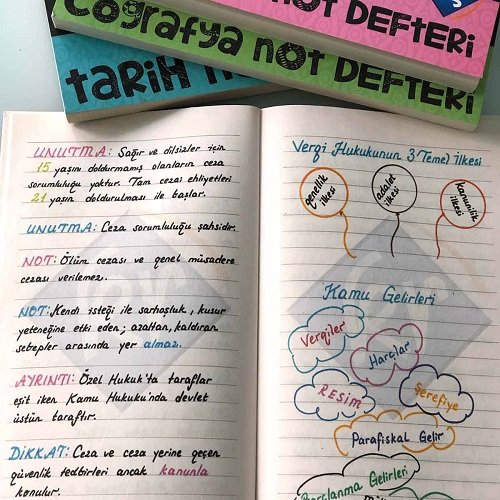 NOT DEFTERİ
Coğrafya NOT DEFTERİ
tarih
DEFTERİ
UNUTMA: Sağır ve dilsizler için
15 yaşını doldurmamış olanların ceza
sorumluluğu yoktur. Tam cezai ehliyetleri
21 yaşın doldurulması ile başlar.
UNUTMA: Ceza sorumluluğu şahsidir.
NOT: Ölüm cezası ve genel müsadere
cezası verilemez.
NOT: Kendi isteği ile sarhoşluk, kusur
yeteneğine etki eden; azaltan, kaldıran
sebepler arasında yer almaz.
AYRINTI: Özel Hukuk'ta taraflar
eşit iken Kamu Hukuku'nda devlet
üstün taraftır.
DİKKAT: Ceza ve ceza yerine geçen
güvenlik tedbirleri ancak kanunla
konulur.
Vergi Hukukunun 3 Temel İlkesi
genellik
ilkesi
adalet
ilkesi
kanunilik
ilkesi
Kamu Gelirleri
Vergiler
Harçlar
RESİM
Şerefiye
Parafiskal Gelir
Borçlanma Gelirleri